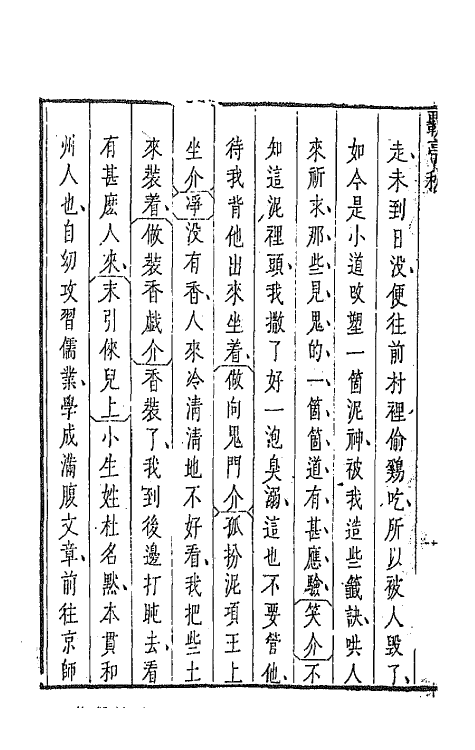 霸亭秋
走未到日没、便往前村裡偷鷄吃、所以被人毀了、
如今是小道改塑一箇泥神、被我造些籤訣、哄人
來祈求、那些見鬼的、一箇箇道有甚應驗、笑介不
知這泥裡頭、我撒了好一泡臭溺、這也不要管他、
待我背他出來坐着、做向鬼門介孤扮泥項王上
坐介淨没有香、人來冷清清地不好看、我把些土
來裝着、做裝香戲介香裝了、我到後邊打盹去、看
有甚麽人來、末引倈兒上小生姓杜名默、本貫和
州人也、自幼攻習儒業、學成滿腹文章、前往京師